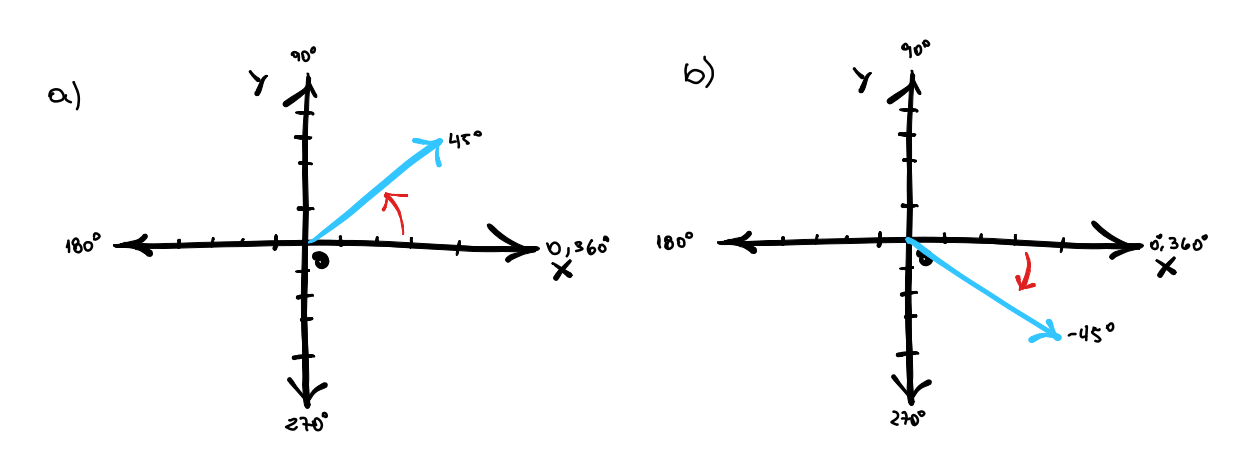 a)
90°
Y
45°
180°
0,360°
X
0
270°
b)
90°
Y
180°
0°,360°
X
0
-45°
270°